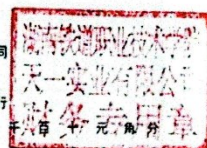 司
湖南铁道职业技术学院
天一实业有限公司
行
财务专用章
千百十元角分